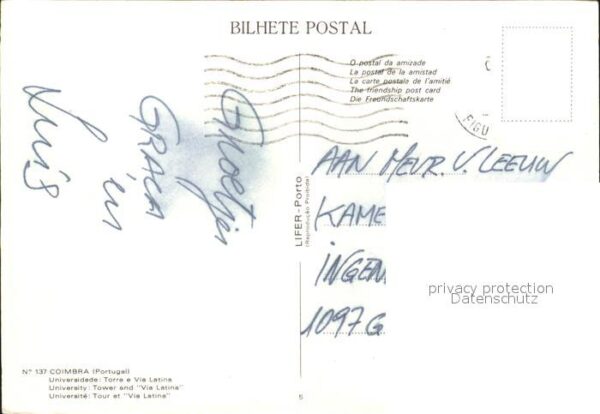 BILHETE POSTAL
O postal da amizade
La postal de la amistad
La carte postale de l'amitié
The friendship post card
Die Freundschaftskarte
FIGU
Groetjes
GRAÇA
en
Luís
LIFER - Porto
(Reprodução Proibida)
AAN MEVR. V. LEEUW
KAME
INGEN
1097 G
privacy protection
Datenschutz
Nº 137 COIMBRA (Portugal)
Universidade: Torre e Via Latina
University: Tower and "Via Latina"
Université: Tour et "Via Latina"
5